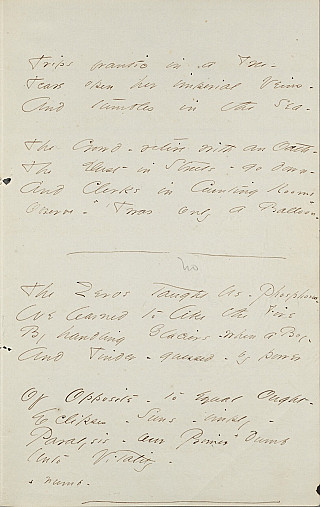 Trips frantic in a Tree -
Tears open her imperial Veins -
And tumbles in the Sea -
The Crowd - retire with an Oath -
The Dust in Streets - go down -
And Clerks in Counting Rooms
Observe - "'Twas only a Balloon" -
no
The Zeros taught us - Phosphorus
We learned to like the Fire
By handling Glaciers - when a Boy -
And Tinder - guessed - by power
Of Opposite - to equal Ought -
Eclipses - Suns - imply -
Paralysis - our Primer dumb
Unto Vitality -
numb -